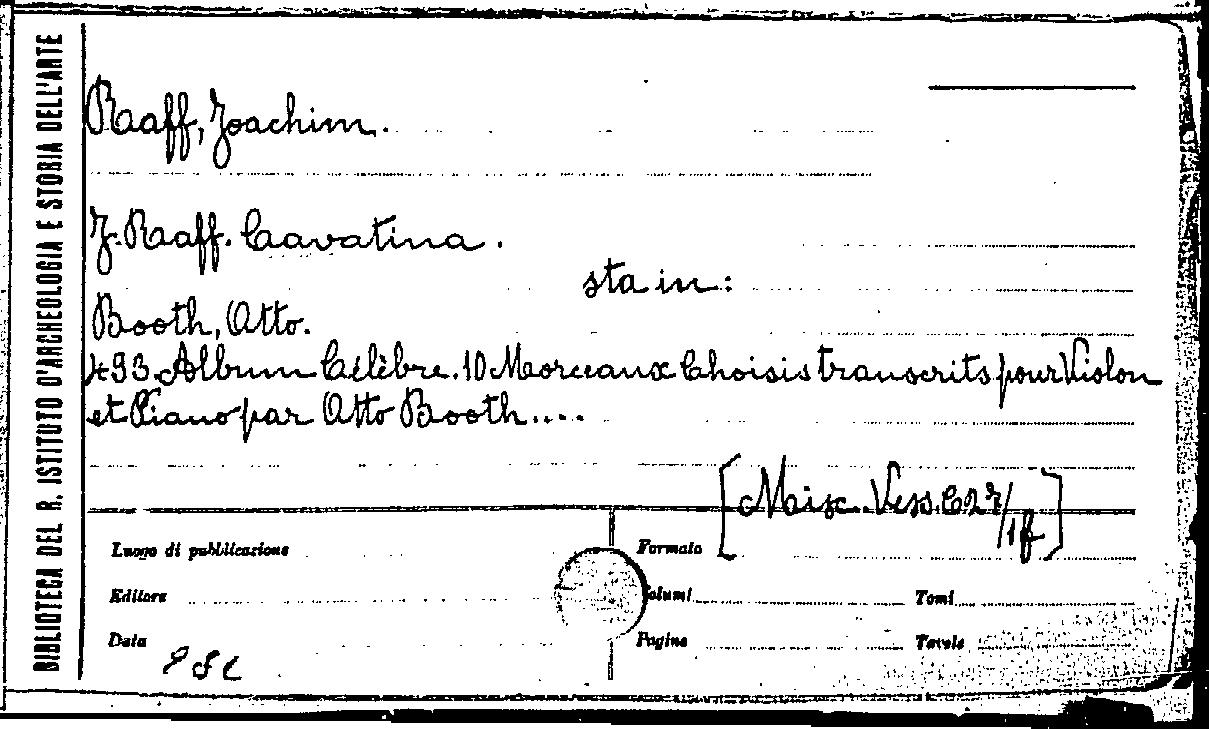 BIBLIOTECA DEL R. ISTITUTO D'ARCHEOLOGIA E STORIA DELL'ARTE
Raff, Joachim.
J. Raff. Cavatina.
sta in:
Booth, Otto.
493. Album Célèbre. 10 Morceaux Choisis transcrits pour Violon
et Piano par Otto Booth....
[Misc. Vess. C 27/1f]
Luogo di pubblicazione
Formato
Editore
Volumi
Tomi
Data
Pagine
Tavole